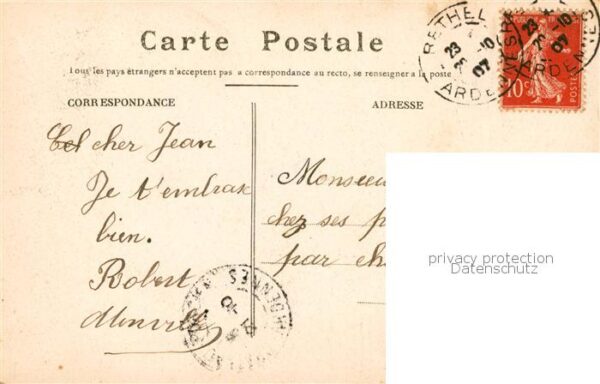 Carte Postale
Tous les pays étrangers n'acceptent pas a correspondance au recto, se renseigner a la poste
CORRESPONDANCE
ADRESSE
cher Jean
Je t'embrasse
bien.
Robert
Monsieur
chez ses p
par ch
RETHEL
23
10
07
ARDENNES
10c
POSTES
ARDENNES
privacy protection
Datenschutz